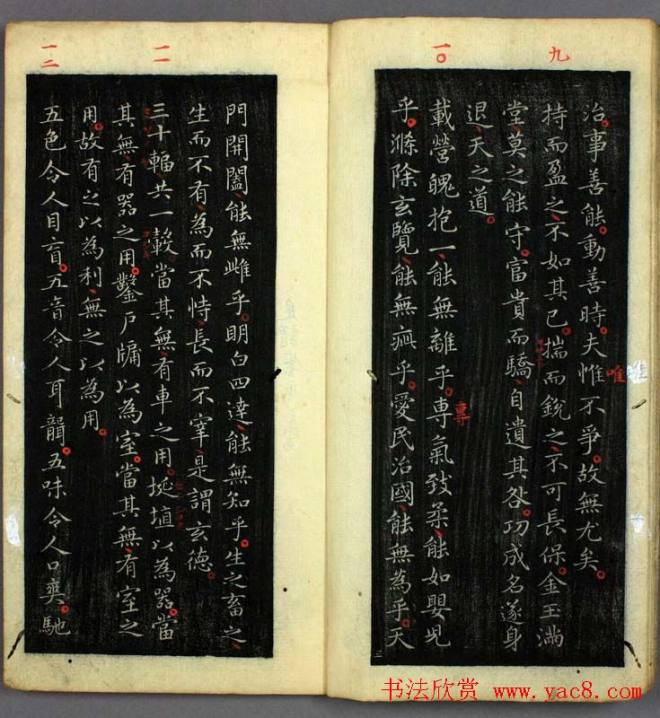 九
一〇
治事善能動善時夫惟不爭故無尤矣
唯
持而盈之不如其已揣而銳之不可長保金玉滿
堂莫之能守富貴而驕自遺其咎功成名遂身
退天之道
載營魄抱一能無離乎專氣致柔能如嬰兒
專
乎滌除玄覽能無疵乎愛民治國能無為乎天
一一
一二
門開闔能無雌乎明白四達能無知乎生之畜之
生而不有為而不恃長而不宰是謂玄德
三十輻共一轂當其無有車之用埏埴以為器當
其無有器之用鑿戶牖以為室當其無有室之
用故有之以為利無之以為用
五色令人目盲五音令人耳聾五味令人口爽馳
书法欣赏 www.yac8.com